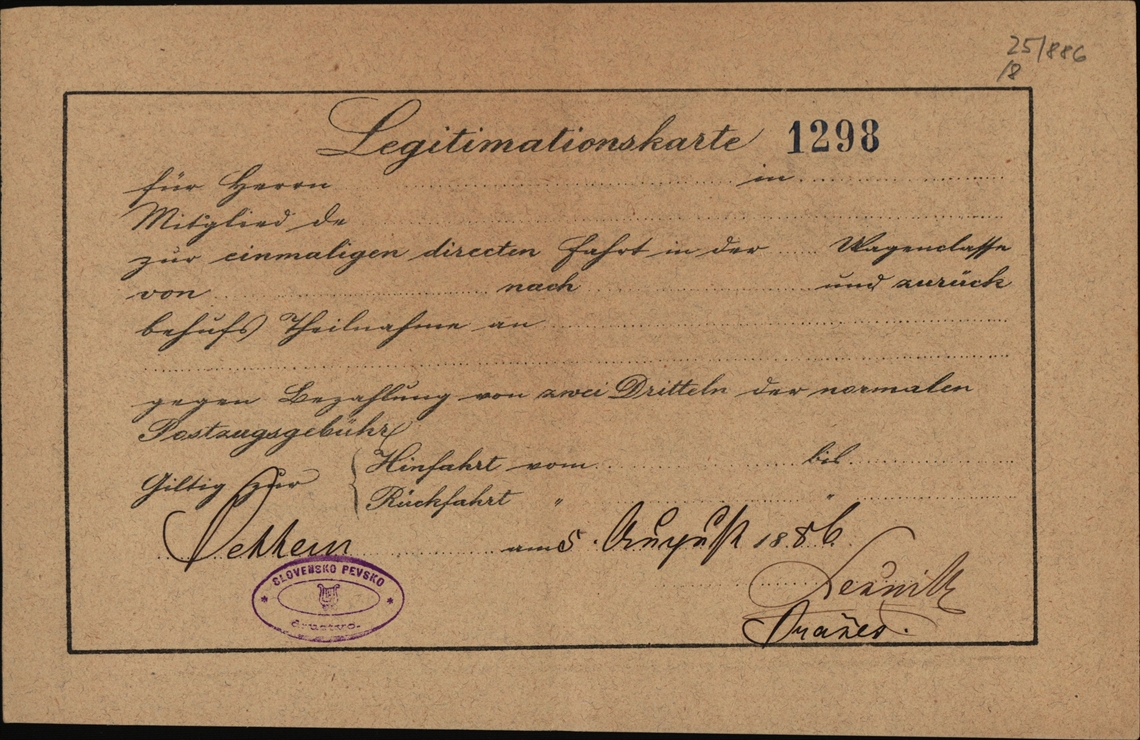 25/886
/8
Legitimationskarte 1298
für Herrn in
Mitglied de
zur einmaligen directen Fahrt in der Wagenclasse
von nach und zurück
behufs Theilnahme an
gegen Bezahlung von zwei Dritteln der normalen
Postzugsgebühr
Giltig zur { Hinfahrt vom bis
Rückfahrt " "
am 5. August 1886.
SLOVENSKO PEVSKO
društvo.